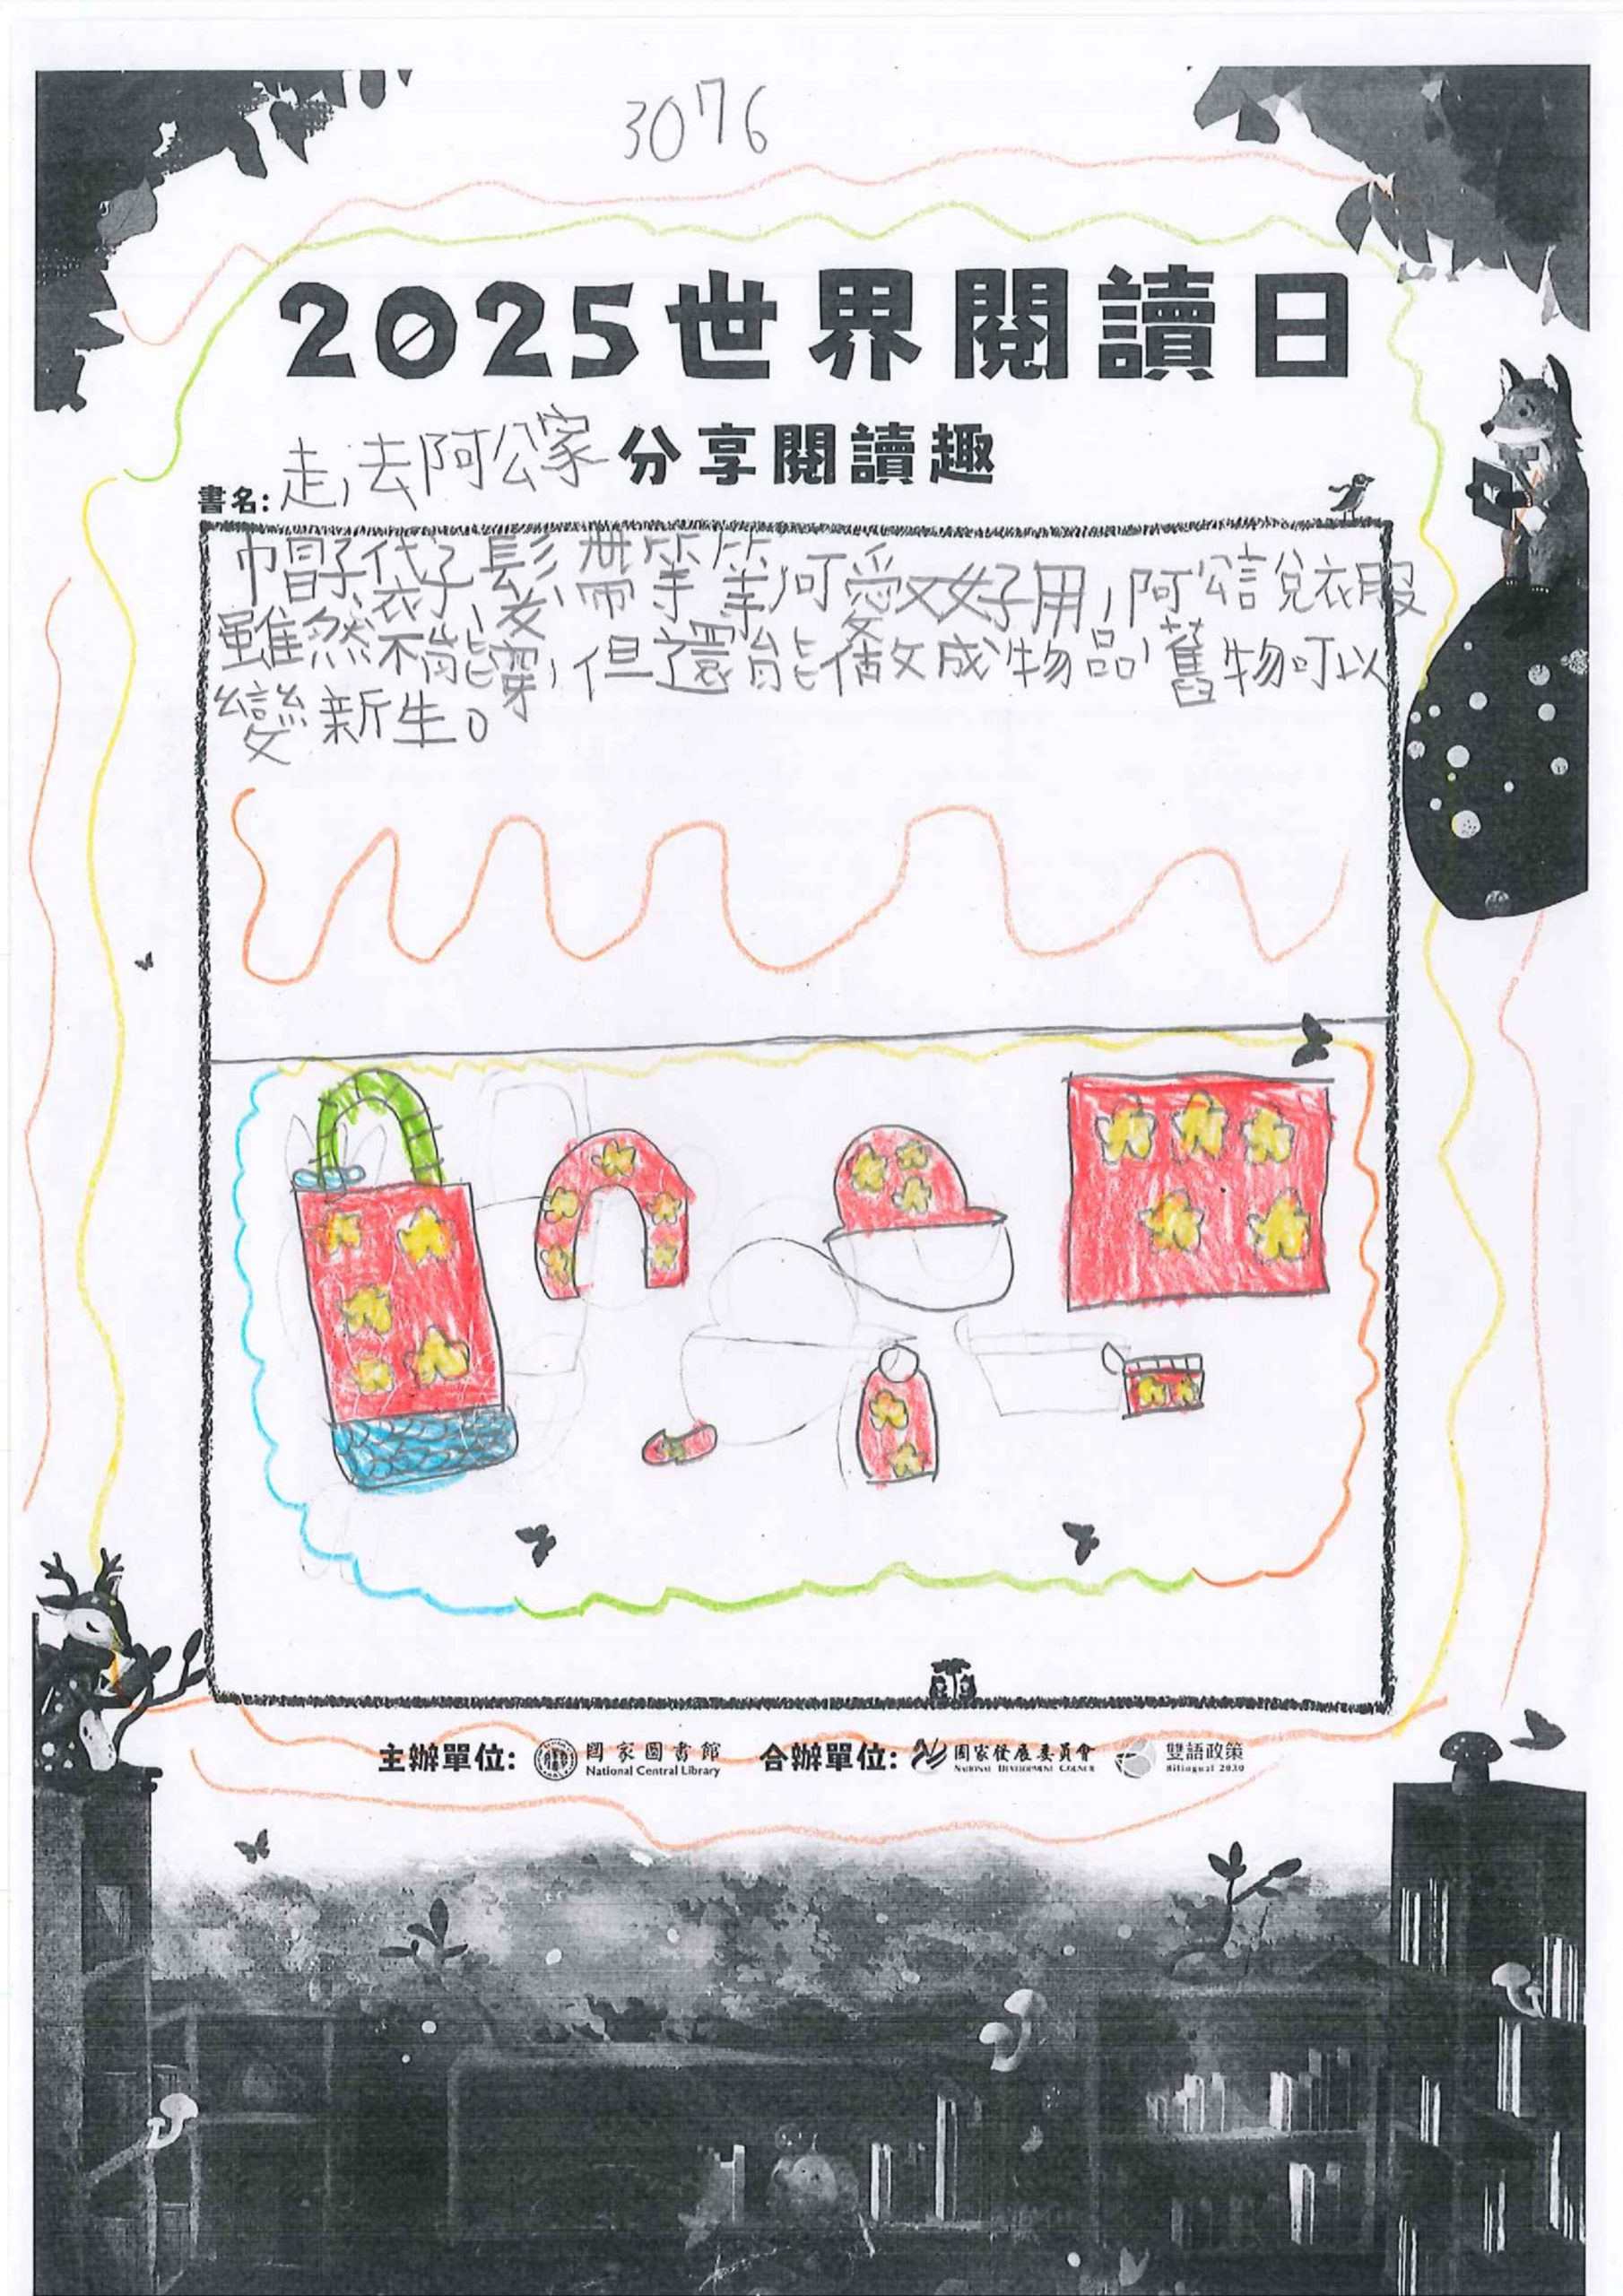 3076
2025世界閱讀日
分享閱讀趣
書名:走,去阿公家
帽子、袋子、髮帶等等,可愛又好用,阿公說衣服
雖然不能穿,但還能做成物品,舊物可以
變新生。
主辦單位: 國家圖書館 National Central Library 合辦單位: 國家發展委員會 NATIONAL DEVELOPMENT COUNCIL 雙語政策 Bilingual 2030